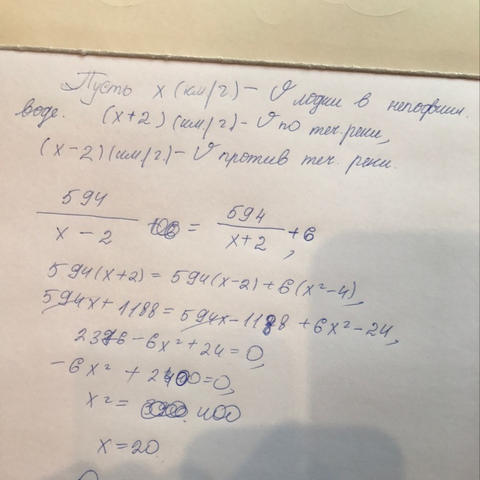 Пусть x (км/г) - V лодки в неподвиж.
воде. (x+2) (км/г) - V по теч. реки,
(x-2) (км/г) - V против теч. реки.
594/(x-2) = 594/(x+2) + 6,
594(x+2) = 594(x-2) + 6(x²-4),
594x + 1188 = 594x - 1188 + 6x² - 24,
2376 - 6x² + 24 = 0,
-6x² + 2400 = 0,
x² = 400
x = 20